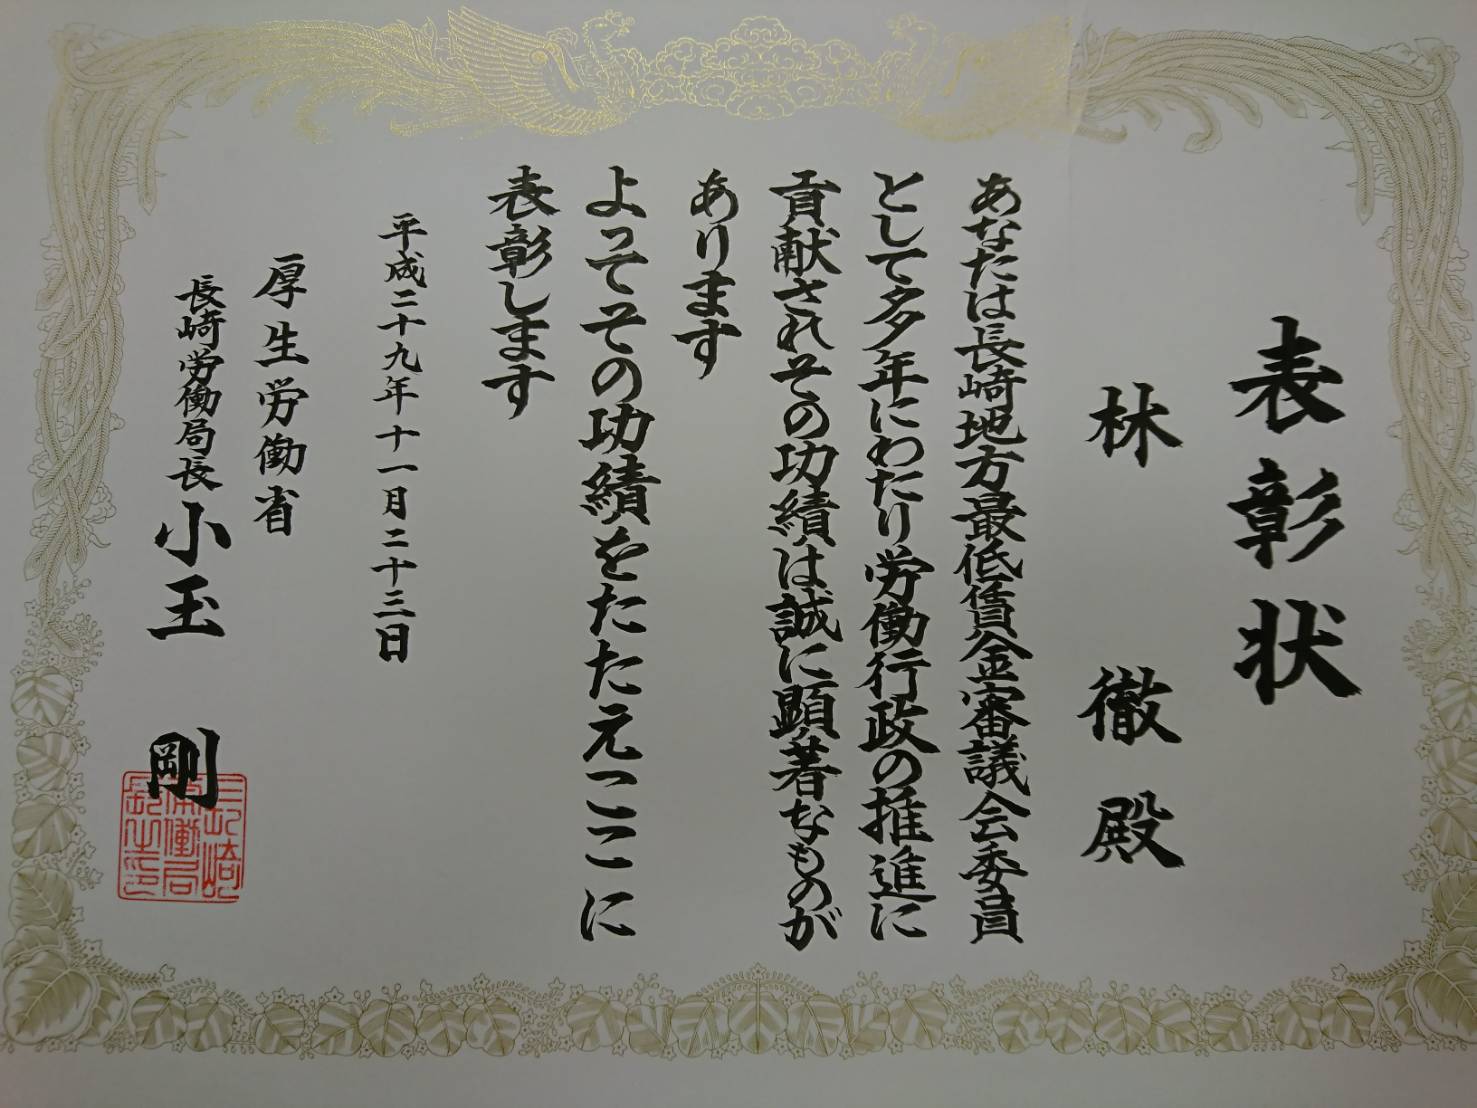 表彰状
林 徹 殿
あなたは長崎地方最低賃金審議会委員
として多年にわたり労働行政の推進に
貢献されその功績は誠に顕著なものが
あります
よってその功績をたたえここに
表彰します
平成二十九年十一月二十三日
厚生労働省
長崎労働局長 小玉 剛
長崎
労働局
長之印